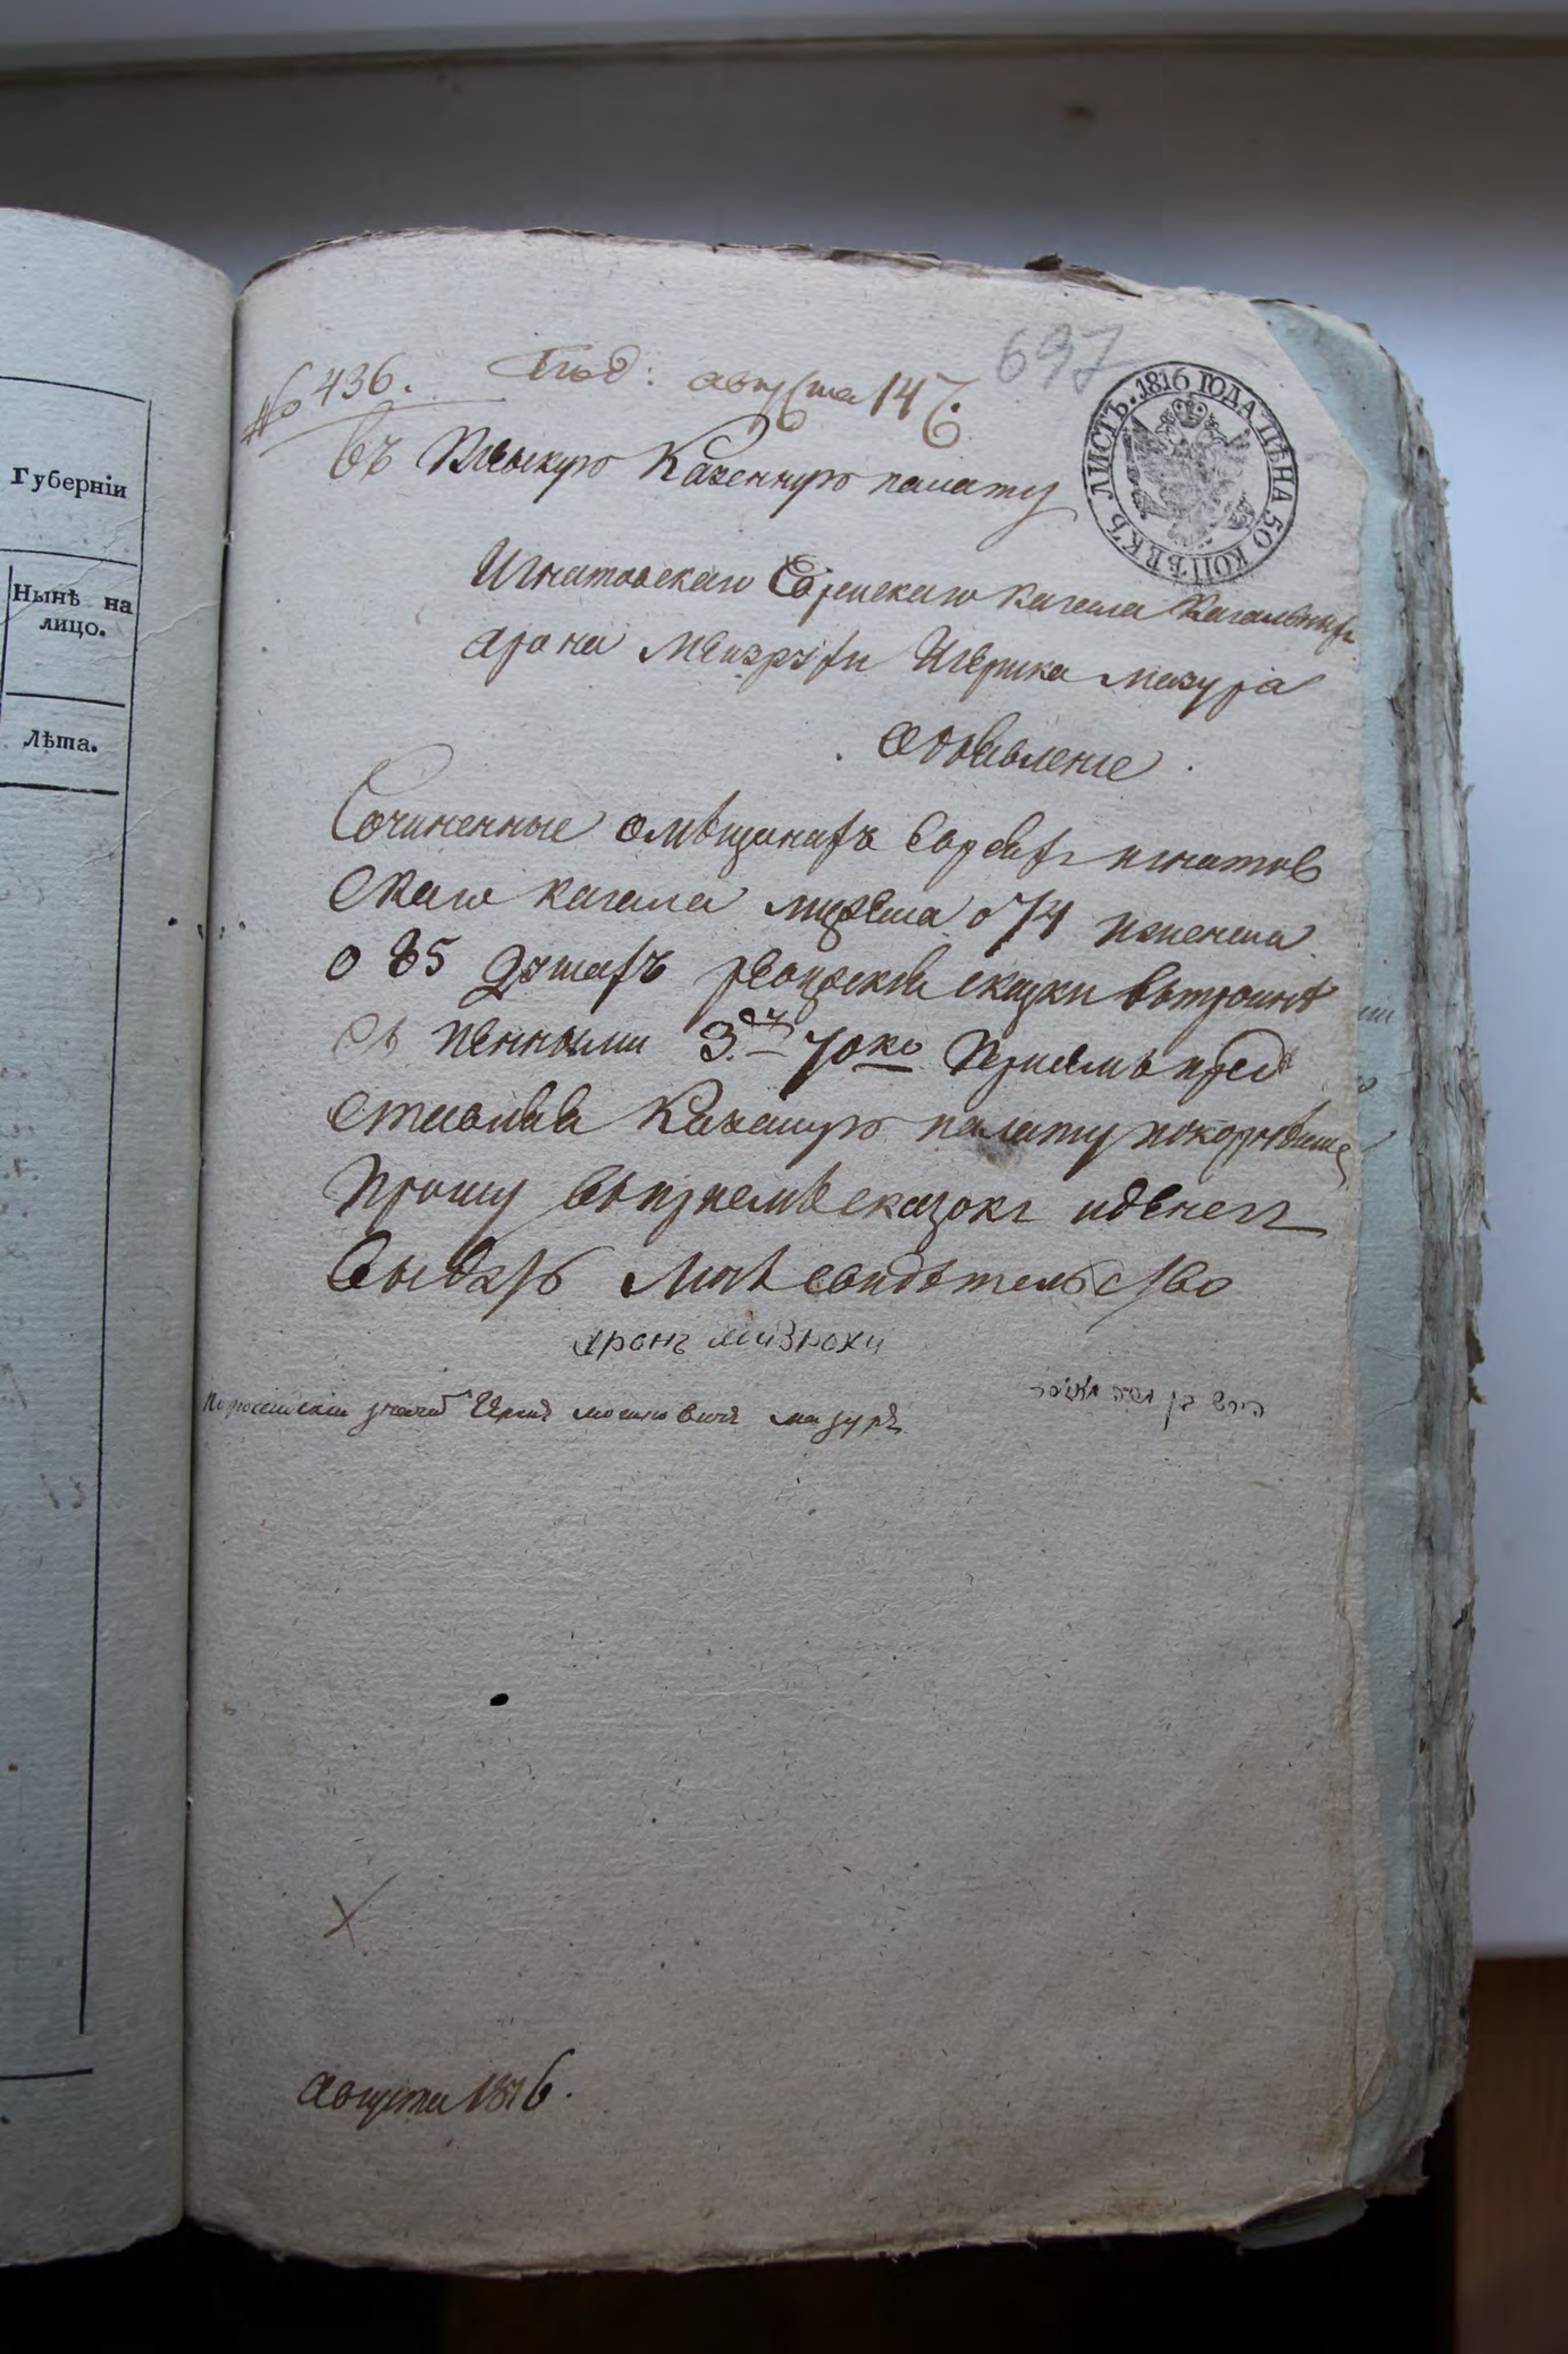 Губерніи
Нынѣ на
лицо.
Лѣта.
697
№ 436. Под: августа 14
ЛИСТЪ. 1816 ГОДА ЦѢНА 50 КОПѢЕКЪ
Въ Киевскую Казенную палату
Игнатовскаго Еврейскаго кагала Кагальных
арона Мейзрахи Иерша мазура
Обявление
Сочиненные о мѣщанахъ Евреях игнатов
скаго кагала мужеска о 74 и женска
о 85 душахъ ревизские сказки втроине
съ пенными 3. 70 ко при семъ пред
ставляя Казенную палату покорнѣише
прошу в приемѣ сказокъ и денегъ
выдать мнѣ свидѣтельство
аронъ мизрахи
по россиискии значит Ерш мошковичъ мазуръ
הירש בן משה מאזור
августа 1816.